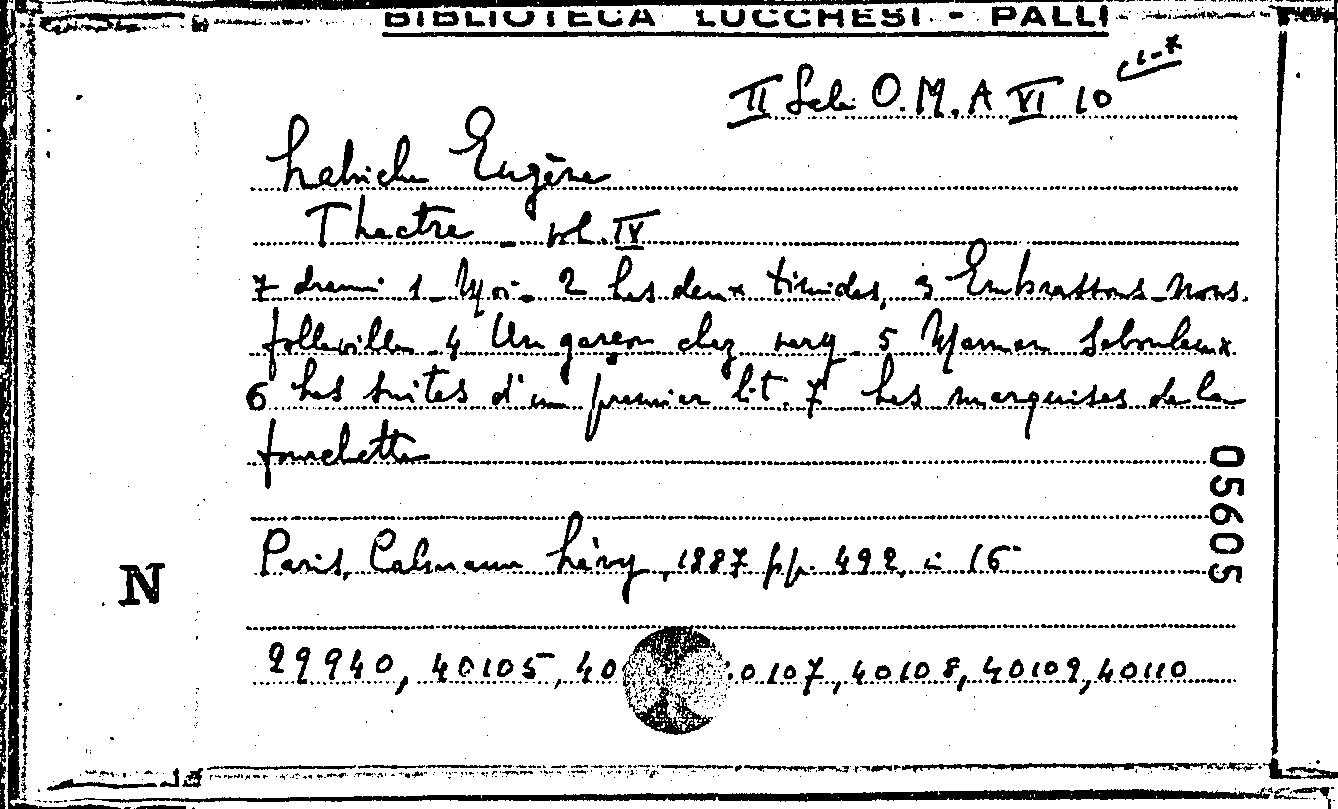 BIBLIOTECA LUCCHESI - PALLI
II Sala O.M.A VI 10 (1-7
Labiche Eugène
Theatre - vol. IV
7 drammi 1 - Moi - 2 Les deux timides, 3 Embrassons-nous
folleville - 4 Un garçon chez very - 5 Maman Sabouleux
6 Les suites d'un premier lit. 7 Les marquises de la
fourchette
Paris, Calmann Lévy, 1887 pp. 492, in 16°
29940, 40105, 40 0107, 40108, 40109, 40110
N
05605